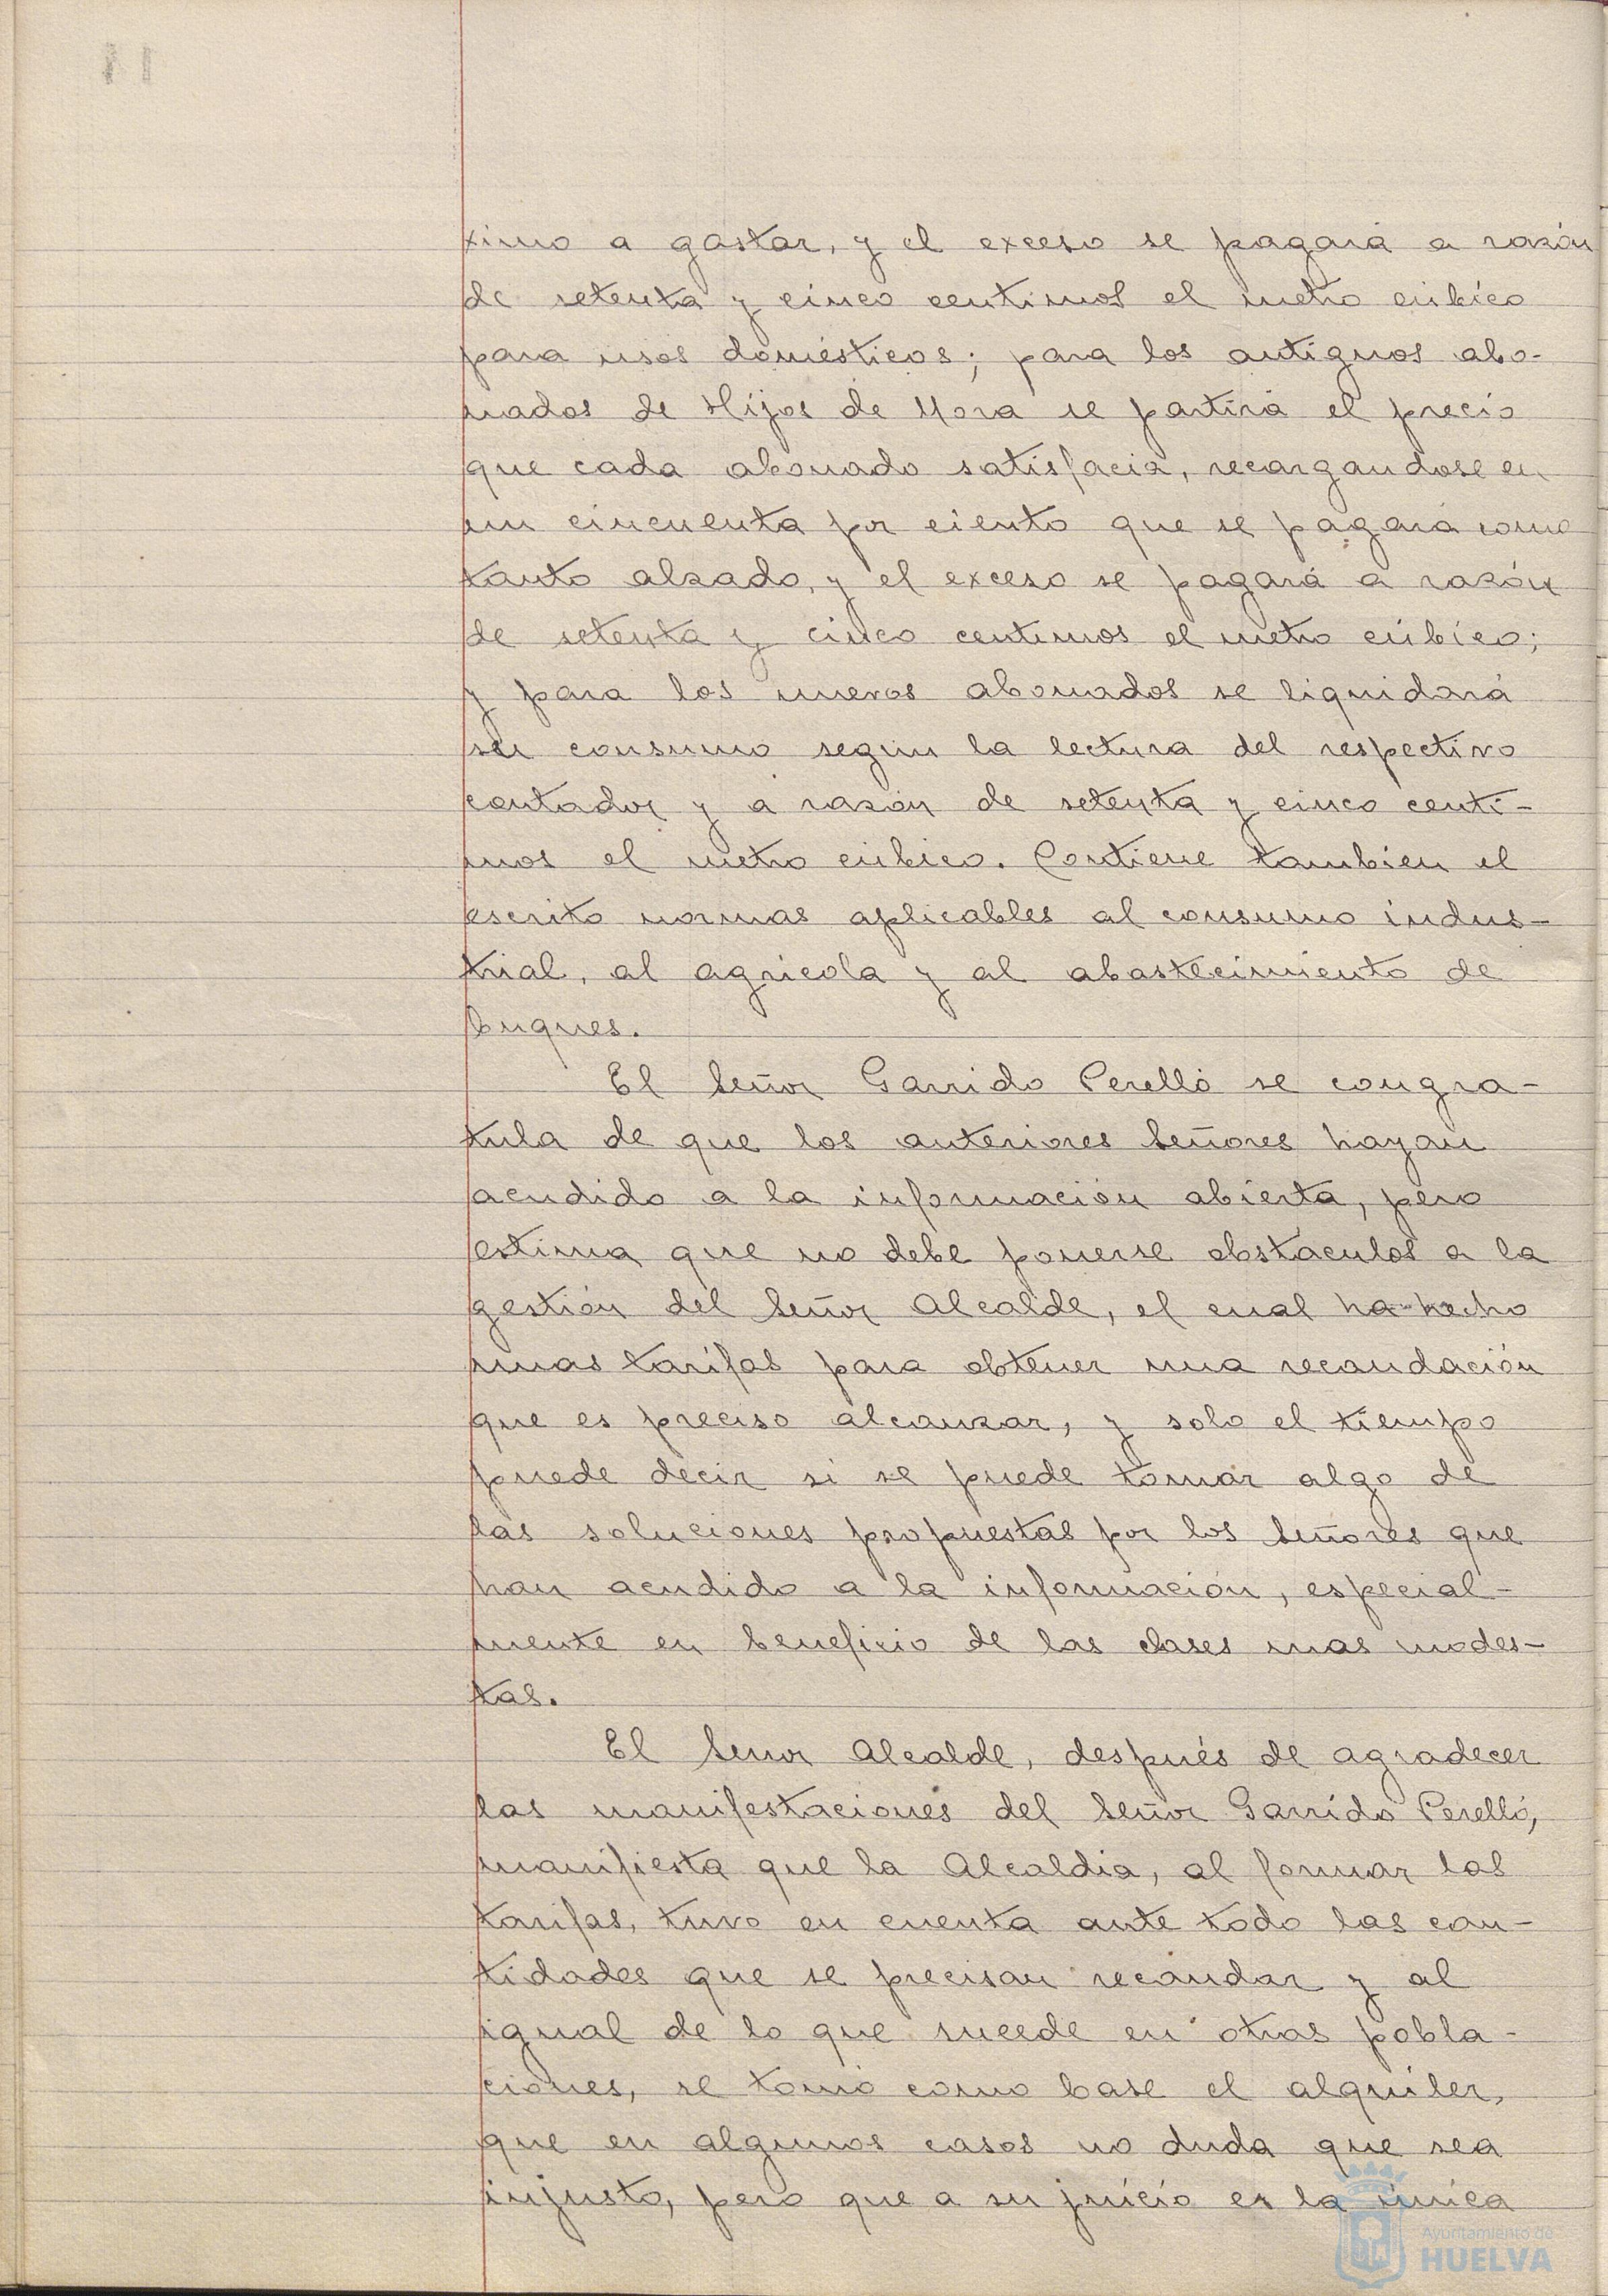 ximo a gastar, y el exceso se pagará a razón
de setenta y cinco centimos el metro cúbico
para usos domésticos; para los antiguos abo-
nados de Hijos de Mora se partirá el precio
que cada abonado satisfacia, recargandose en
un cincuenta por ciento que se pagará como
tanto alzado, y el exceso se pagará a razón
de setenta y cinco centimos el metro cúbico;
y para los nuevos abonados se liquidará
su consumo segun la lectura del respectivo
contador y a razón de setenta y cinco centi-
mos el metro cúbico. Contiene tambien el
escrito normas aplicables al consumo indus-
trial, al agrícola y al abastecimiento de
buques.
El Señor Garrido Perelló se congra-
tula de que los anteriores Señores hayan
acudido a la información abierta, pero
estima que no debe ponerse obstaculos a la
gestión del Señor Alcalde, el cual ha hecho
unas tarifas para obtener una recaudación
que es preciso alcanzar, y solo el tiempo
puede decir si se puede tomar algo de
las soluciones propuestas por los Señores que
han acudido a la información, especial-
mente en beneficio de las clases mas modes-
tas.
El Senor Alcalde, después de agradecer
las manifestaciones del Señor Garrido Perelló,
manifiesta que la Alcaldia, al formar las
tarifas, tuvo en cuenta ante todo las can-
tidades que se precisan recaudar y al
igual de lo que sucede en otras pobla-
ciones, se tomó como base el alquiler,
que en algunos casos no duda que sea
injusto, pero que a su juicio es la única
Ayuntamiento de
HUELVA